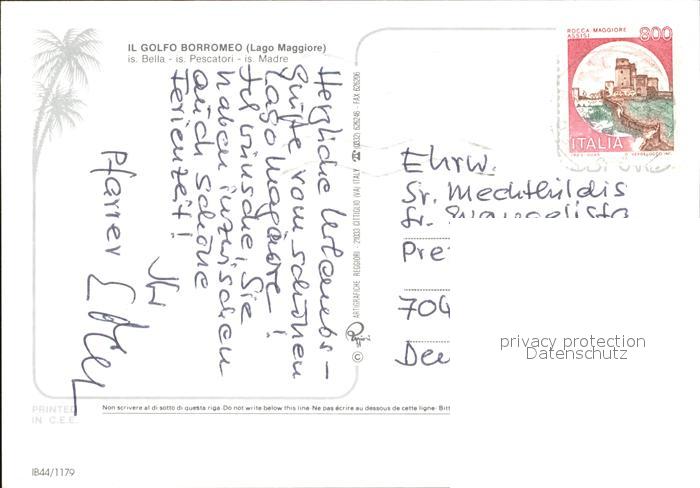 IL GOLFO BORROMEO (Lago Maggiore)
is. Bella - is. Pescatori - is. Madre
ROCCA MAGGIORE
ASSISI
800
ITALIA
Herzliche Urlaubs-
Grüße vom schönen
Lago magiore!
Ich wünsche, Sie
haben inzwischen
auch schöne
Ferienzeit!
Ihr
Pfarrer
ARTIGRAFICHE REGGIORI - 21033 CITTIGLIO (VA) ITALY ☎ (0332) 626246 - FAX 626296
©
Ehrw.
Sr. Mechthildis
Sr. Evangelista
704
privacy protection
Datenschutz
PRINTED
IN C.E.E.
Non scrivere al di sotto di questa riga - Do not write below this line - Ne pas écrire au dessous de cette ligne - Bitt
IB44/1179